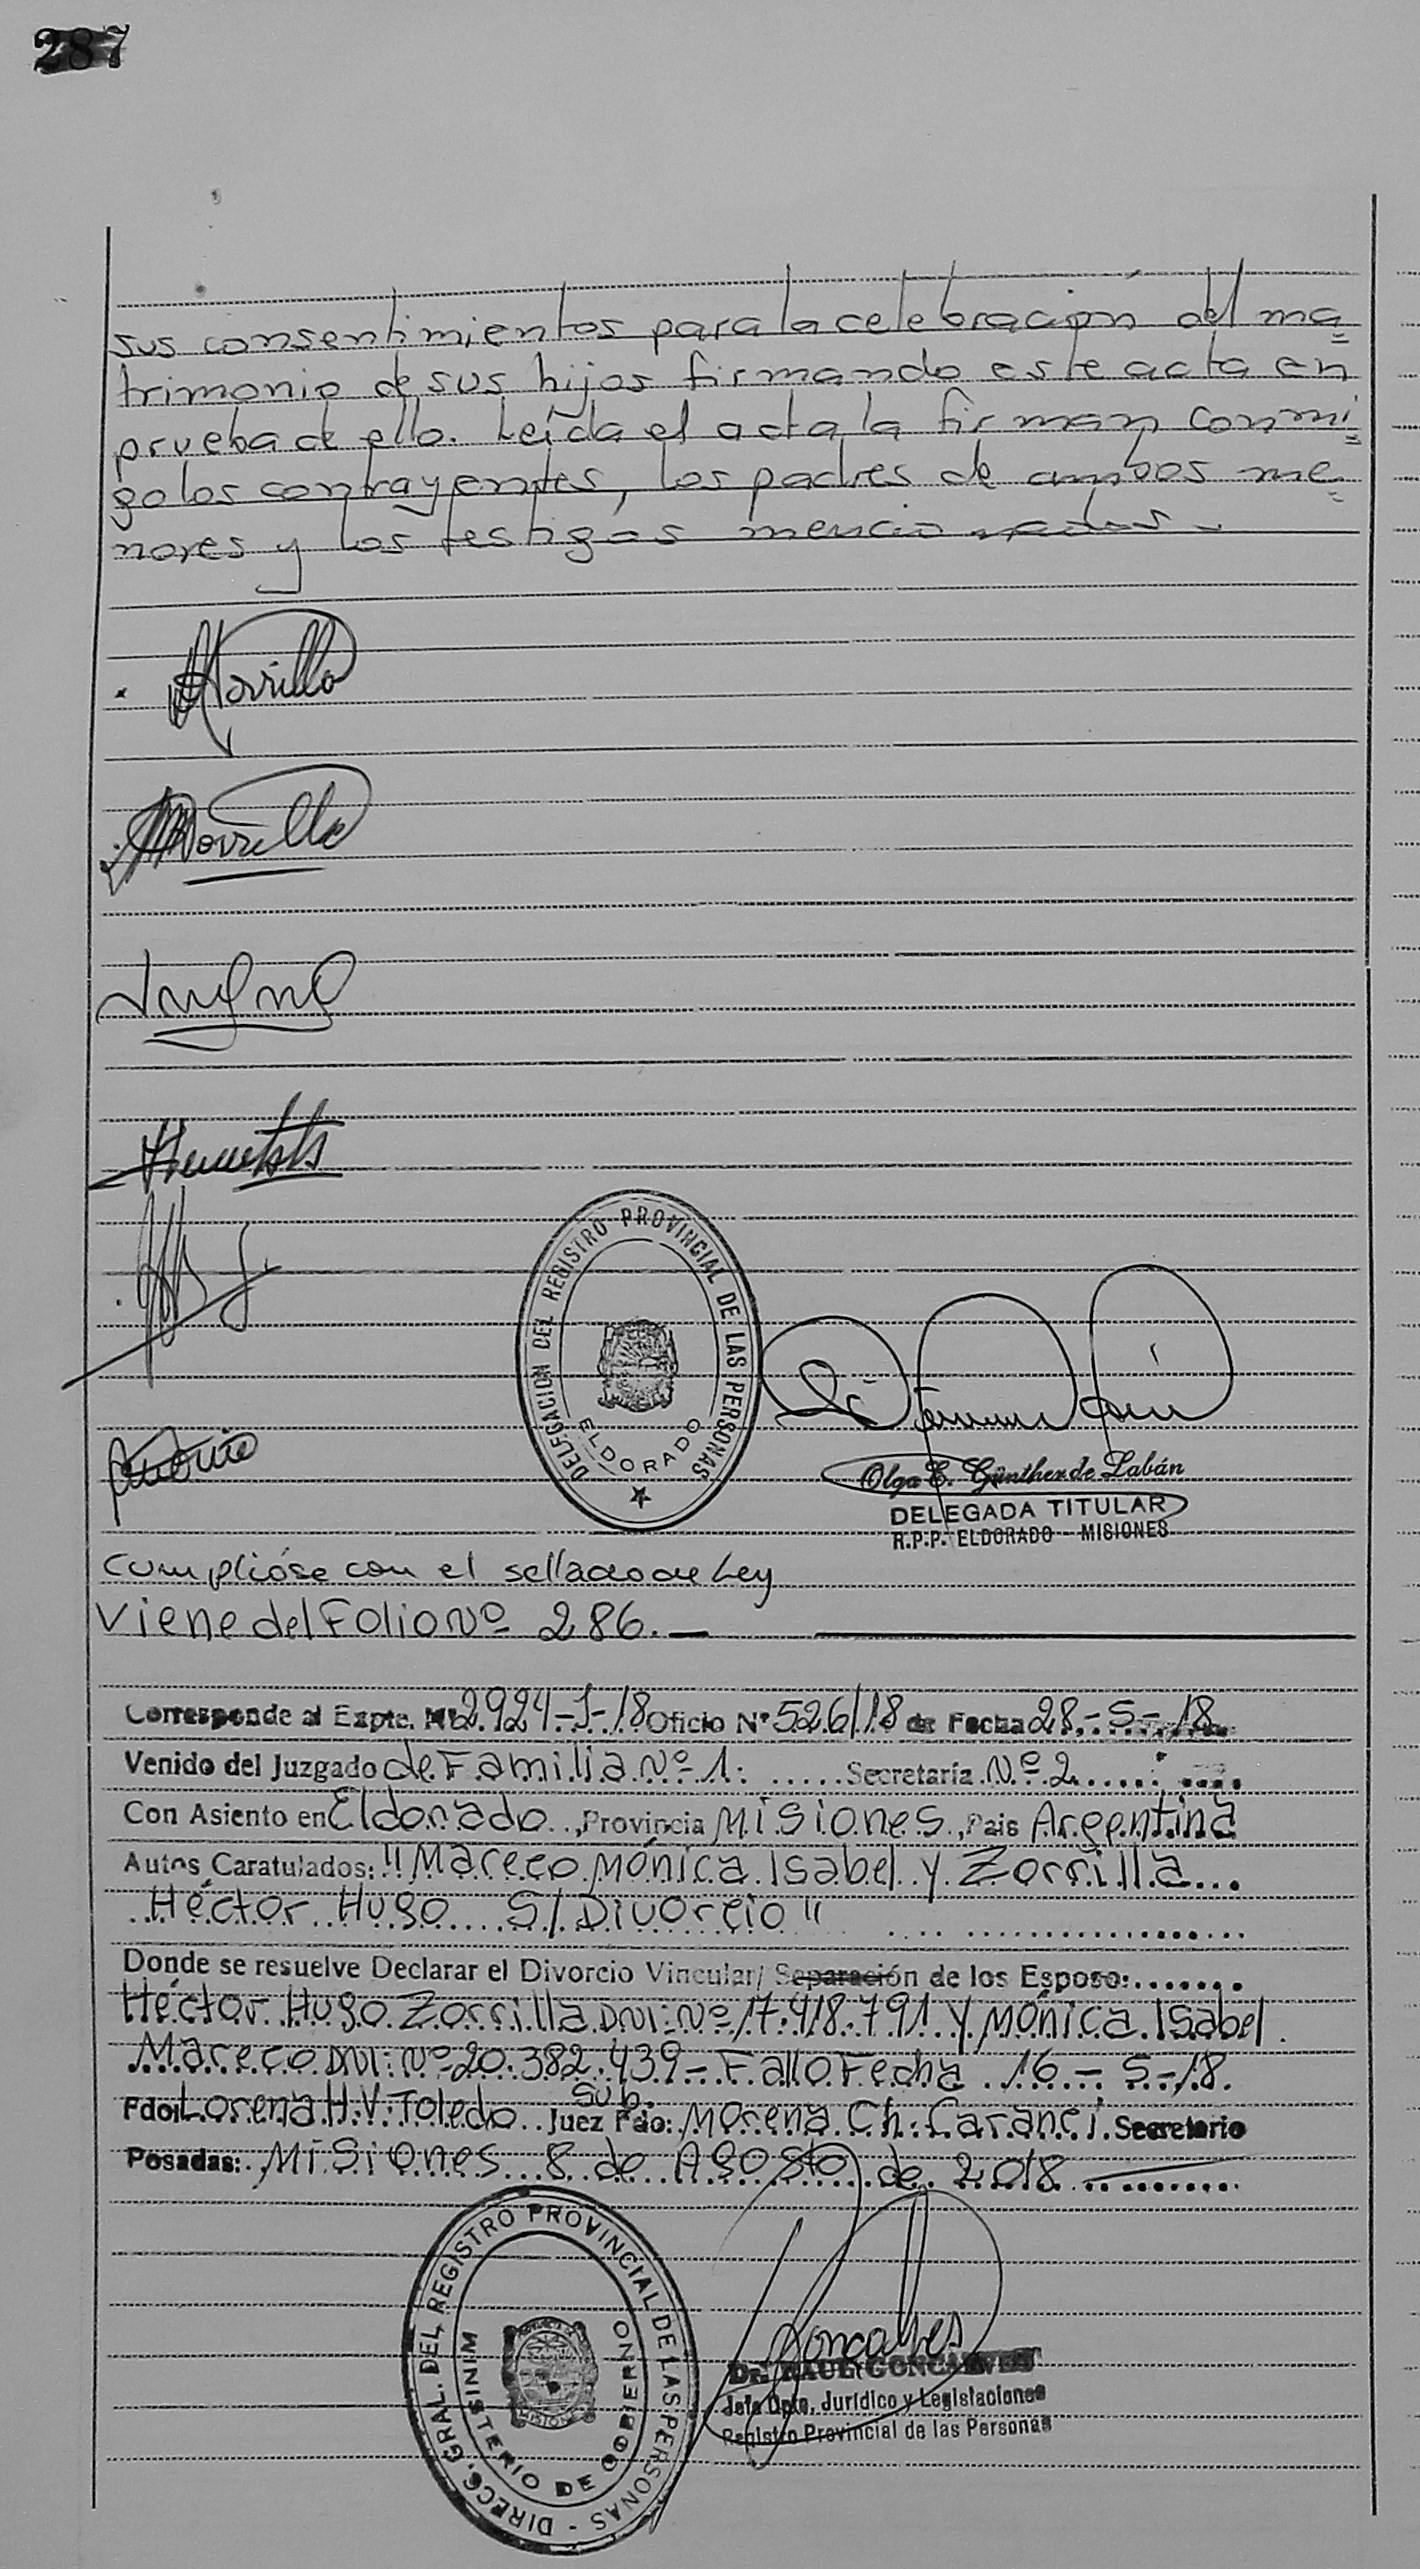 287
sus consentimientos para la celebración del ma=
trimonio de sus hijos firmando este acta en
prueba de ello. Leída el acta la firman conmi=
go los contrayentes, los padres de ambos me=
nores y los testigos mencionados.-
Zorrilla
Zorrilla
DELEGACION DEL REGISTRO PROVINCIAL DE LAS PERSONAS
ELDORADO
Olga E. Günther de Labán
DELEGADA TITULAR
R.P.P. ELDORADO - MISIONES
Cumplióse con el sellado de Ley
Viene del Folio Nº 286.—
Corresponde al Expte. Nº 2924-J-18 Oficio Nº 526/18 de Fecha 28-5-18
Venido del Juzgado de Familia Nº 1. Secretaría Nº 2
Con Asiento en Eldorado, Provincia Misiones, Pais Argentina
Autos Caratulados: "Mareco Mónica Isabel y Zorrilla
Héctor Hugo S/Divorcio"
Donde se resuelve Declarar el Divorcio Vincular/ Separación de los Esposo:
Héctor Hugo Zorrilla DNI: Nº 17.418.791 y Mónica Isabel
Mareco DNI: Nº 20.382.439- Fallo Fecha 16-5-18.
Sub.
Fdo: Lorena H.V. Toledo Juez Fdo: Morena Ch. Caranci Secretario
Posadas: Misiones 8 de Agosto de 2018
DIRECC. GRAL. DEL REGISTRO PROVINCIAL DE LAS PERSONAS -
MINISTERIO DE GOBIERNO
MISIONES
Goncalves
Dr. RAUL GONCALVES
Jefe Dpto. Jurídico y Legislaciones
Registro Provincial de las Personas